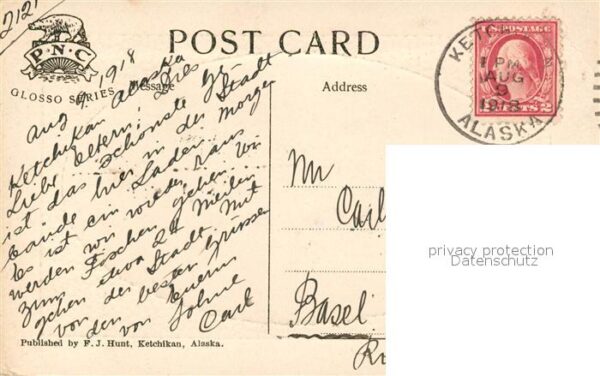 2121
P·N·C
GLOSSO SERIES
POST CARD
Message
Address
Aug 9, 1918
Ketchikan Alaska
Liebe Eltern! Dies
ist das schönste Ge
bäude hier in der Stadt
Es ist ein Laden. Morgen
werden wir wieder raus
zum Fischen gehen. Wir
gehen etwa 24 Meilen
von der Stadt. Mit
den besten Grüssen
von Euerm
Sohne
Carl
KETCH
1 PM
AUG
9
1918
ALASKA
CENTS 2
Mr
Carl
Basel
privacy protection
Datenschutz
Published by F. J. Hunt, Ketchikan, Alaska.